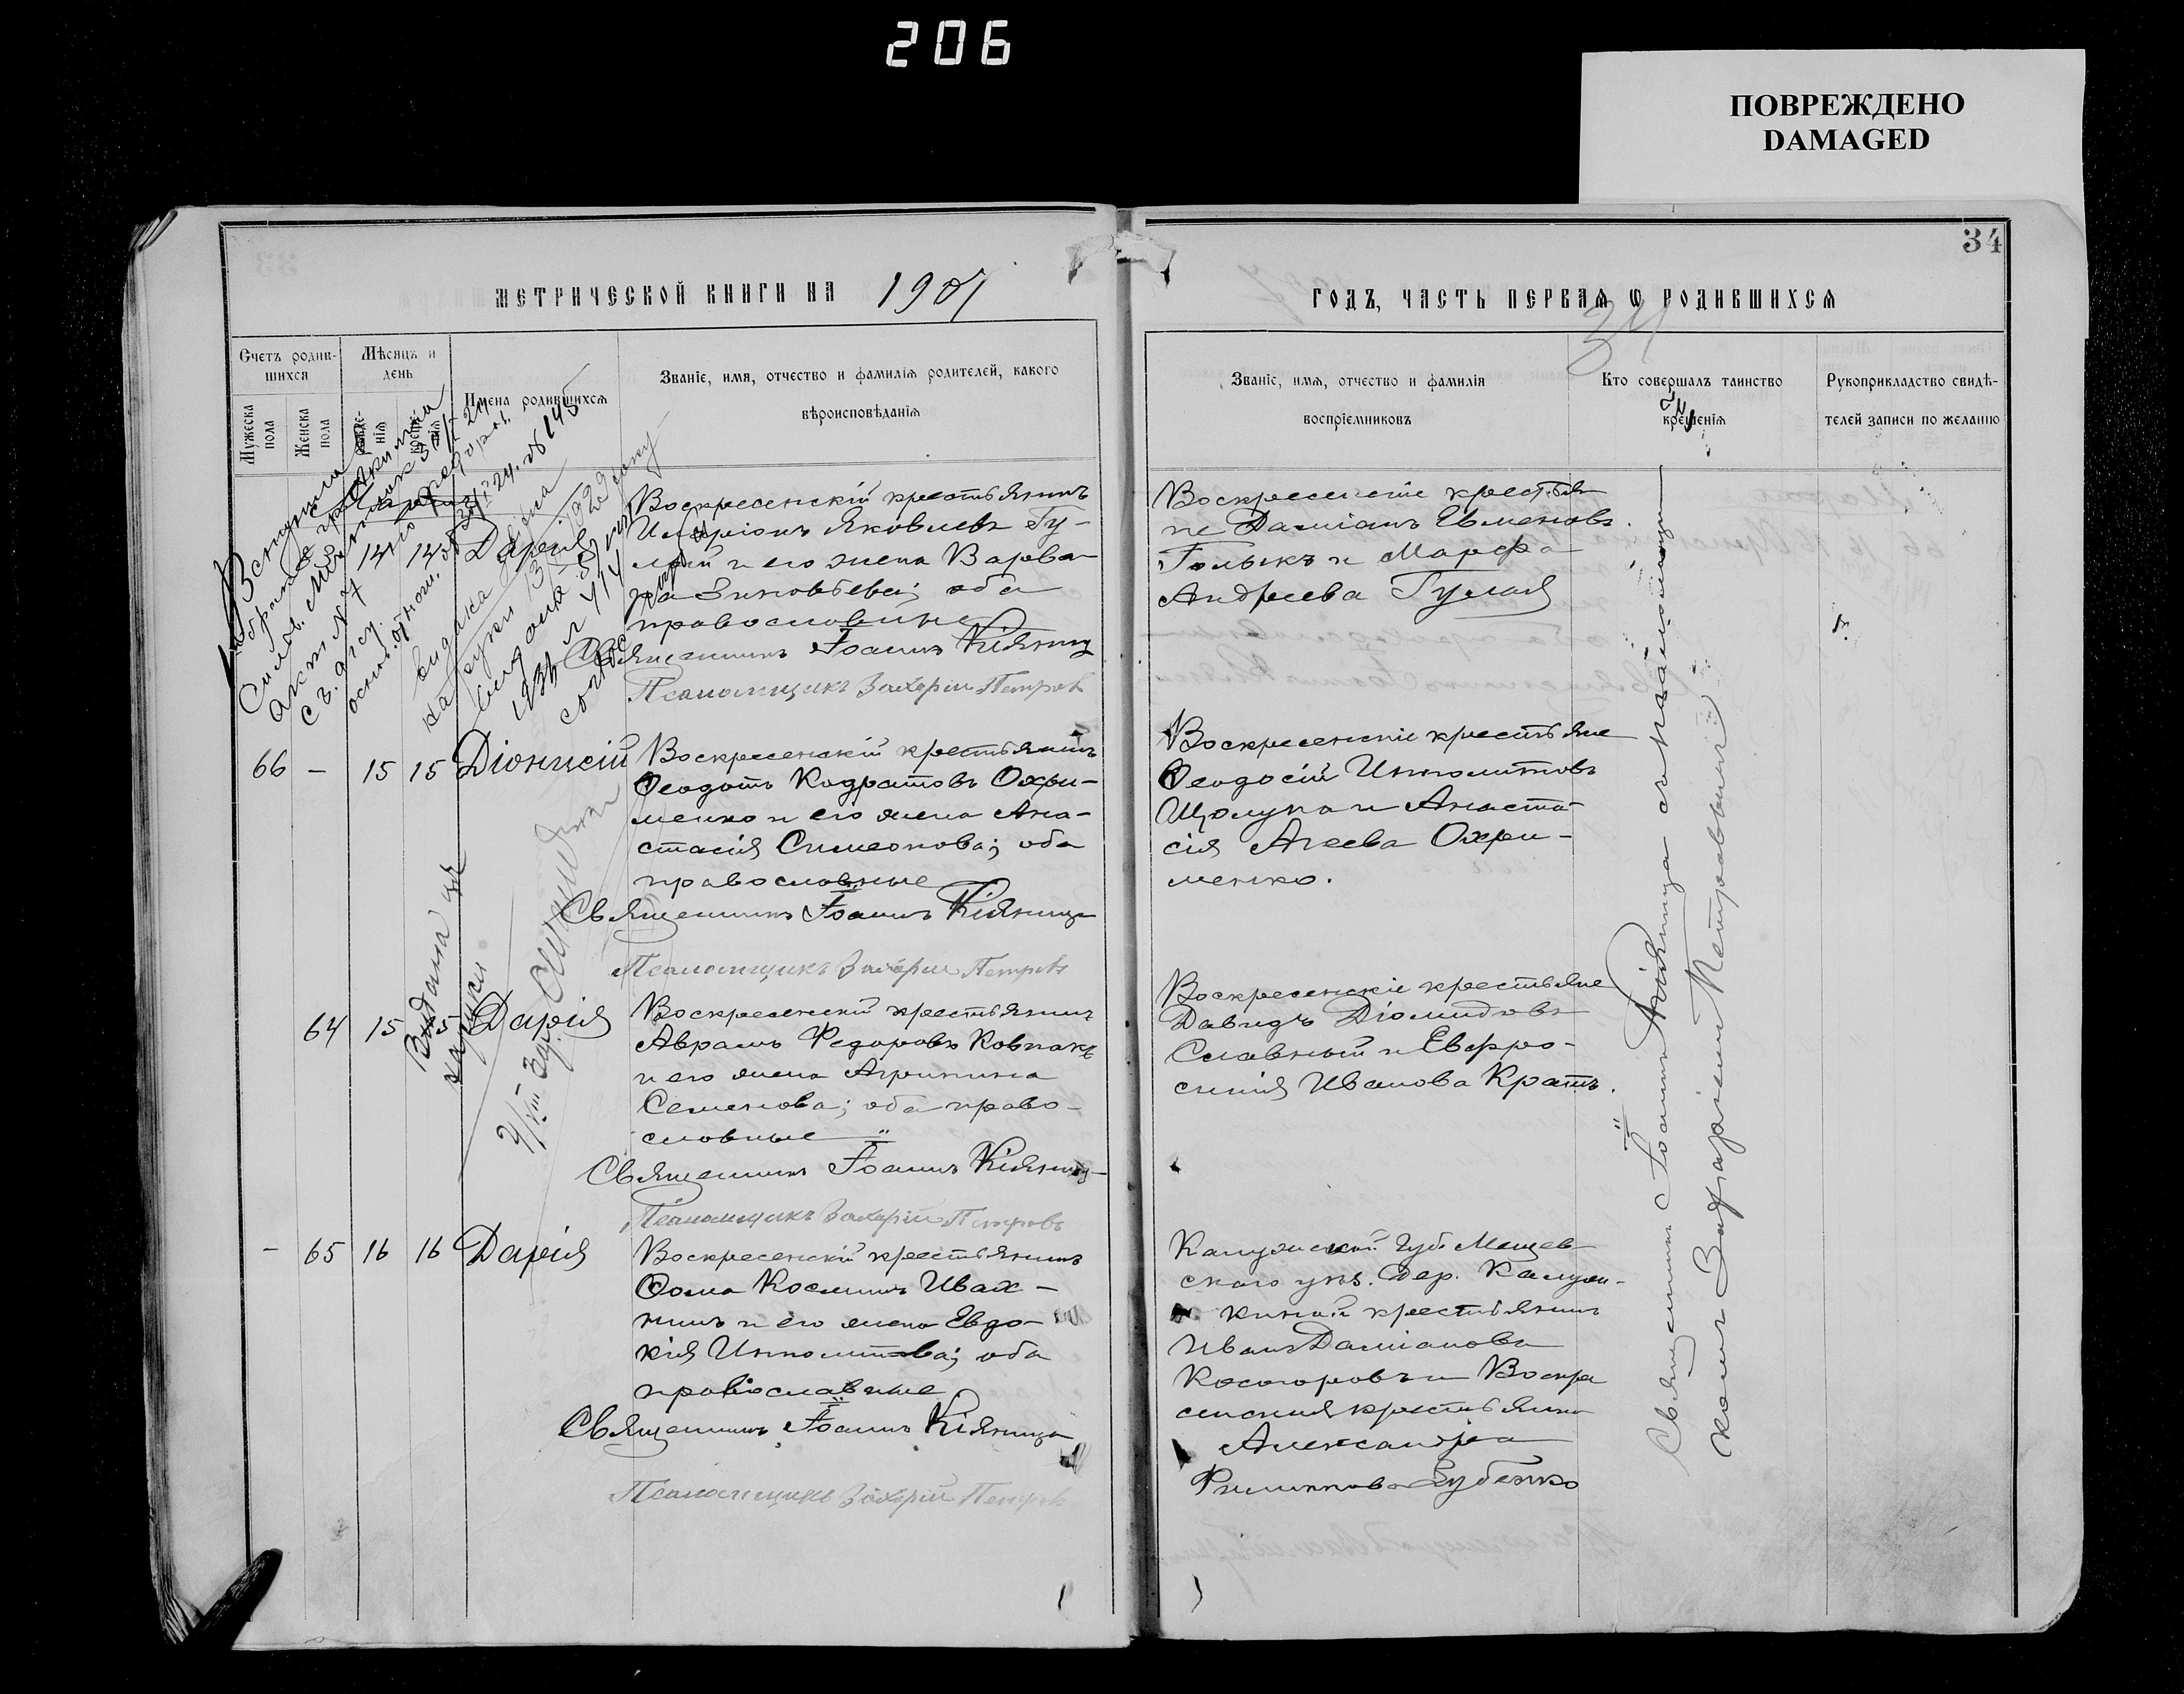 206
ПОВРЕЖДЕНО
DAMAGED
34
МЕТРИЧЕСКОЙ КНИГИ НА 1901
ГОДЪ, ЧАСТЬ ПЕРВАѦ Ѡ РОДИВШИХСѦ
34
Счетъ родив-
шихся
Мужеска пола
Женска пола
Мѣсяцъ и
день
Имена родившихсѧ
Званіе, имя, отчество и фамилія родителей, какого
вѣроисповѣданія
Званіе, имя, отчество и фамилія
воспріемниковъ
Кто совершалъ таинство
крещенія
Рукоприкладство свидѣ-
телей записи по желанію
14 14 Дарія
Воскресенскій крестьянинъ
Иларіонъ Яковлевъ Гу-
лый и его жена Варва-
ра Зиновьева; оба
православные
Священникъ Іоаннъ Кіяница
Псаломщикъ Захарій Петровъ
Воскресенскіе крестья-
не Даміанъ Евменовъ
Голыкъ и Марфа
Андреева Гулая
66 — 15 15 Діонисій
Воскресенскій крестьянинъ
Ѳеодотъ Кодратовъ Охри-
менко и его жена Ана-
стасія Симеонова; оба
православные
Священникъ Іоаннъ Кіяница
Псаломщикъ Захарій Петровъ
Воскресенскіе крестьяне
Ѳеодосій Ипполитовъ
Щолупа и Анаста-
сія Агеева Охри-
менко.
64 15 15 Дарія
Воскресенскій крестьянинъ
Аврамъ Федоровъ Ковпакъ
и его жена Агрипина
Семенова; оба право-
славные
Священникъ Іоаннъ Кіяница
Псаломщикъ Захарій Петровъ
Воскресенскіе крестьяне
Давидъ Діомидовъ
Славный и Евфро-
синія Иванова Кратъ.
- 65 16 16 Дарія
Воскресенскій крестьянинъ
Ѳома Косминъ Ивах-
нинъ и его жена Евдо-
кія Ипполитова; оба
православные
Священникъ Іоаннъ Кіяница
Псаломщикъ Захарій Петровъ
Калужской Губ. Мещев-
скаго уѣз. Дер.
крестьянинъ
Иванъ Даміановъ
Косогоровъ и Воскре
сенская крестьянка
Александра
Филиппова Зубенко
Священникъ Іоаннъ Кіяница съ псаломщи-
комъ Захаріемъ Петровымъ